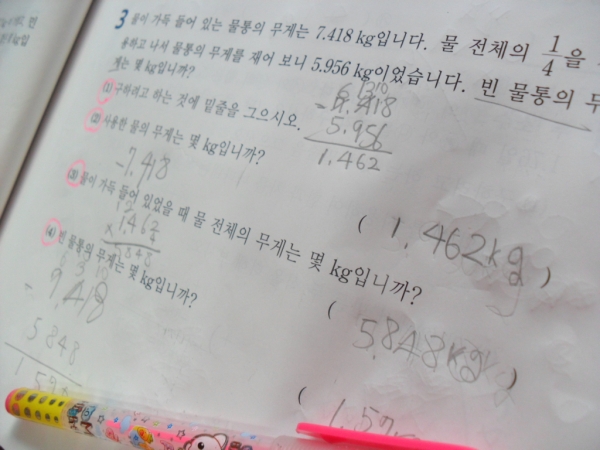 3 물이 가득 들어 있는 물통의 무게는 7.418 kg입니다. 물 전체의 1/4을
용하고 나서 물통의 무게를 재어 보니 5.956 kg이었습니다. 빈 물통의 무
게는 몇 kg입니까?
(1) 구하려고 하는 것에 밑줄을 그으시오.
5.956
1.462
(2) 사용한 물의 무게는 몇 kg입니까?
-7.418
( 1.462kg )
(3) 물이 가득 들어 있었을 때 물 전체의 무게는 몇 kg입니까?
1.462
× 4
5.848
( 5.848kg )
(4) 빈 물통의 무게는 몇 kg입니까?
5.848
( 1.57